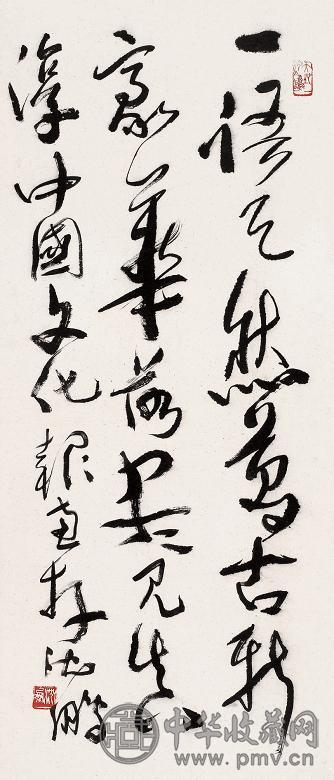 一語天然萬古新
豪華落盡見真
淳中國文化報惠存沈鵬
中华收藏网
www.pmv.cn